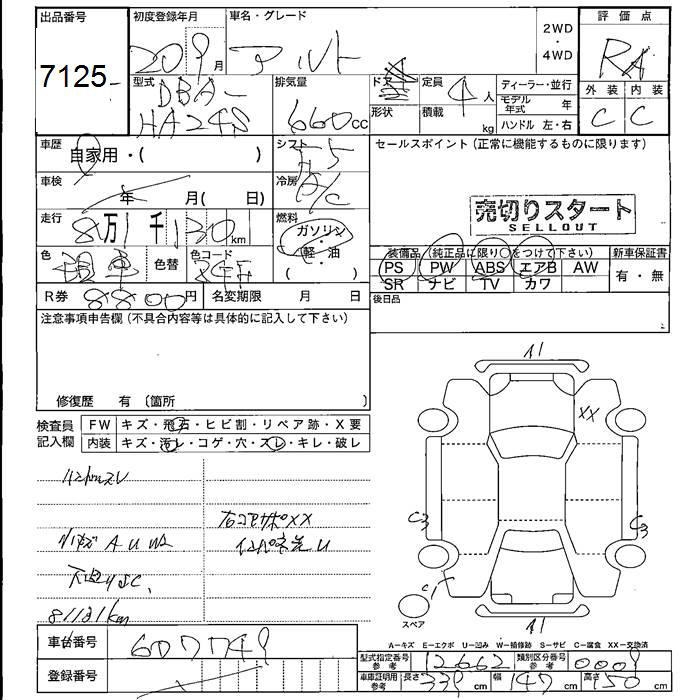 出品番号
7125
初度登録年月
20 9月
車名・グレード
アルト
2WD
・
4WD
評価点
RA
外装 内装
C C
型式
DBA-
HA24S
排気量
660cc
ドア
形状
定員
4人
積載
kg
ディーラー・並行
モデル年式 年
ハンドル 左・右
車歴
自家用・( )
シフト
F5
セールスポイント(正常に機能するものに限ります)
車検
年 月( 日)
冷房
A/C
売切りスタート
SELLOUT
走行
8万1千130km
燃料
ガソリン
・
軽・油
( )
色
色替
色コード
装備品(純正品に限り○をつけて下さい)
新車保証書
PS PW ABS エアB AW
SR ナビ TV カワ
有・無
R券
8800円
名変期限 月 日
後日品
注意事項申告欄(不具合内容等は具体的に記入して下さい)
修復歴 有 〔箇所 〕
A1
XX
検査員
記入欄
FW キズ・飛石・ヒビ割・リペア跡・X要
内装 キズ・汚レ・コゲ・穴・スレ・キレ・破レ
右コアサポXX
A U W2
81131km
C3
C3
C
スペア
A1
A-キズ E-エクボ U-凹み W-補修跡 S-サビ C-腐食 XX-交換済
車台番号
607749
登録番号
型式指定番号
参考
12662
類別区分番号
参考
0009
車庫証明用
参考
長さ 339cm
幅 147cm
高さ 150cm